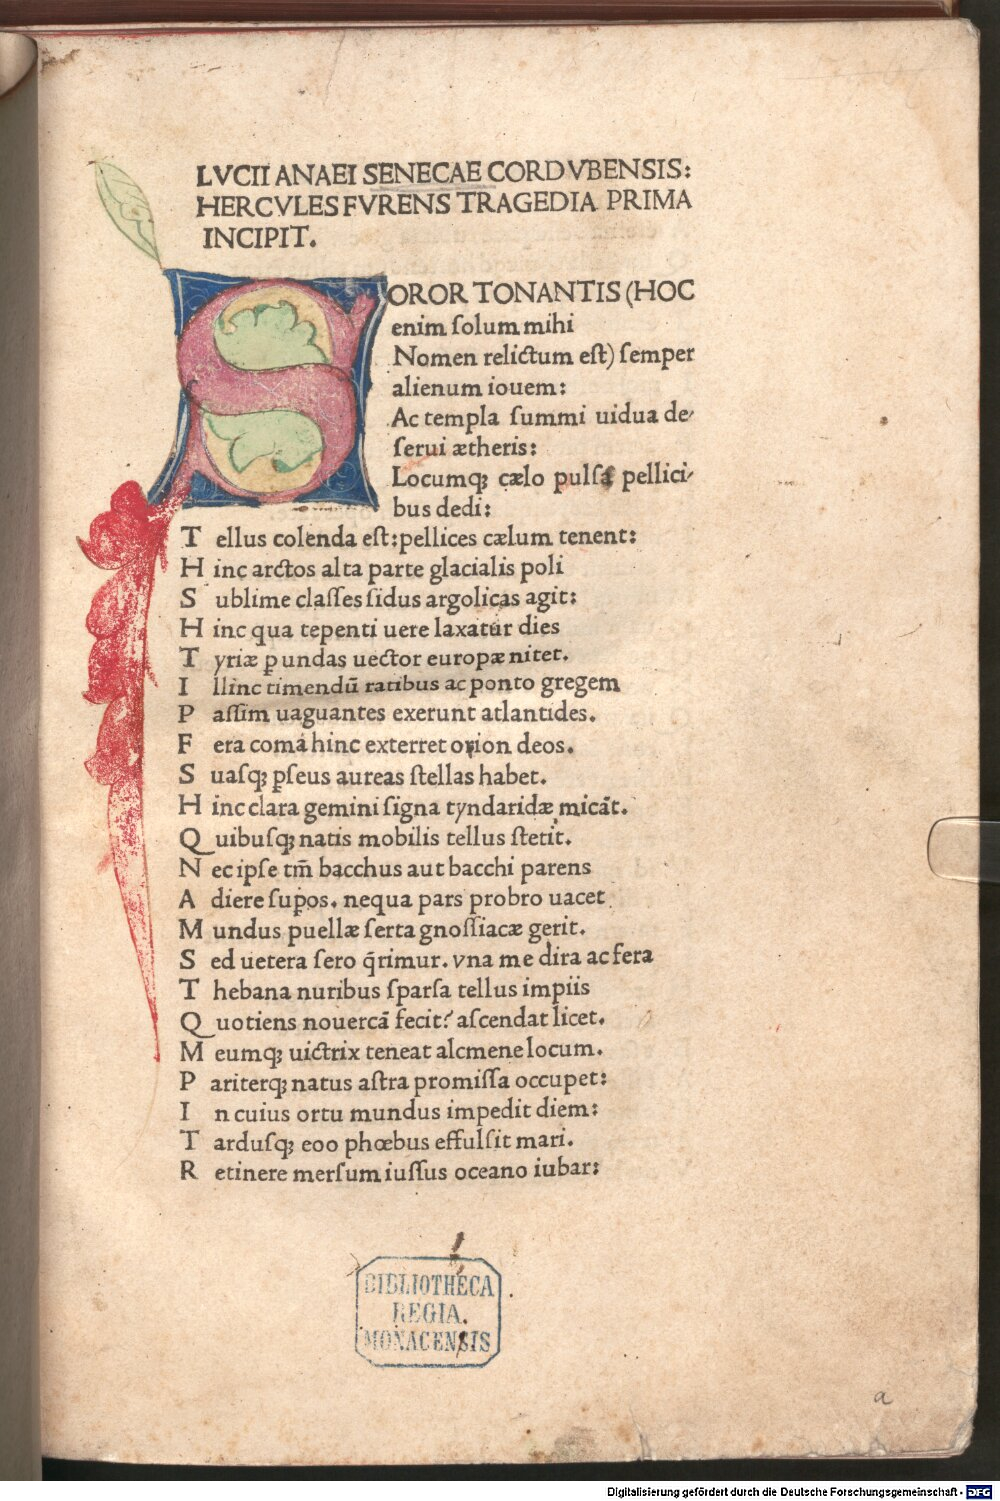 LVCII ANAEI SENECAE CORDVBENSIS:
HERCVLES FVRENS TRAGEDIA PRIMA
INCIPIT.
SOROR TONANTIS (HOC
enim ſolum mihi
Nomen relictum eſt) ſemper
alienum iouem:
Ac templa ſummi uidua de-
ſerui ætheris:
Locumq; cælo pulſa pellici-
bus dedi:
T ellus colenda eſt: pellices cælum tenent:
H inc arctos alta parte glacialis poli
S ublime claſſes ſidus argolicas agit:
H inc qua tepenti uere laxatur dies
T yriæ ꝑ undas uector europæ nitet.
I llinc timendū ratibus ac ponto gregem
P aſſim uaguantes exerunt atlantides.
F era coma hinc exterret orion deos.
S uaſq; ꝑſeus aureas ſtellas habet.
H inc clara gemini ſigna tyndaridæ micāt.
Q uibuſq; natis mobilis tellus ſtetit.
N ec ipſe tm̄ bacchus aut bacchi parens
A diere ſuꝑos. nequa pars probro uacet
M undus puellæ ſerta gnoſſiacæ gerit.
S ed uetera ſero q̄rimur. vna me dira ac fera
T hebana nuribus ſparſa tellus impiis
Q uotiens nouercā fecit? aſcendat licet.
M eumq; uictrix teneat alcmene locum.
P ariterq; natus aſtra promiſſa occupet:
I n cuius ortu mundus impedit diem:
T arduſq; eoo phœbus effulſit mari.
R etinere merſum iuſſus oceano iubar:
BIBLIOTHECA
REGIA.
MONACENSIS
a
Digitalisierung gefördert durch die Deutsche Forschungsgemeinschaft - DFG